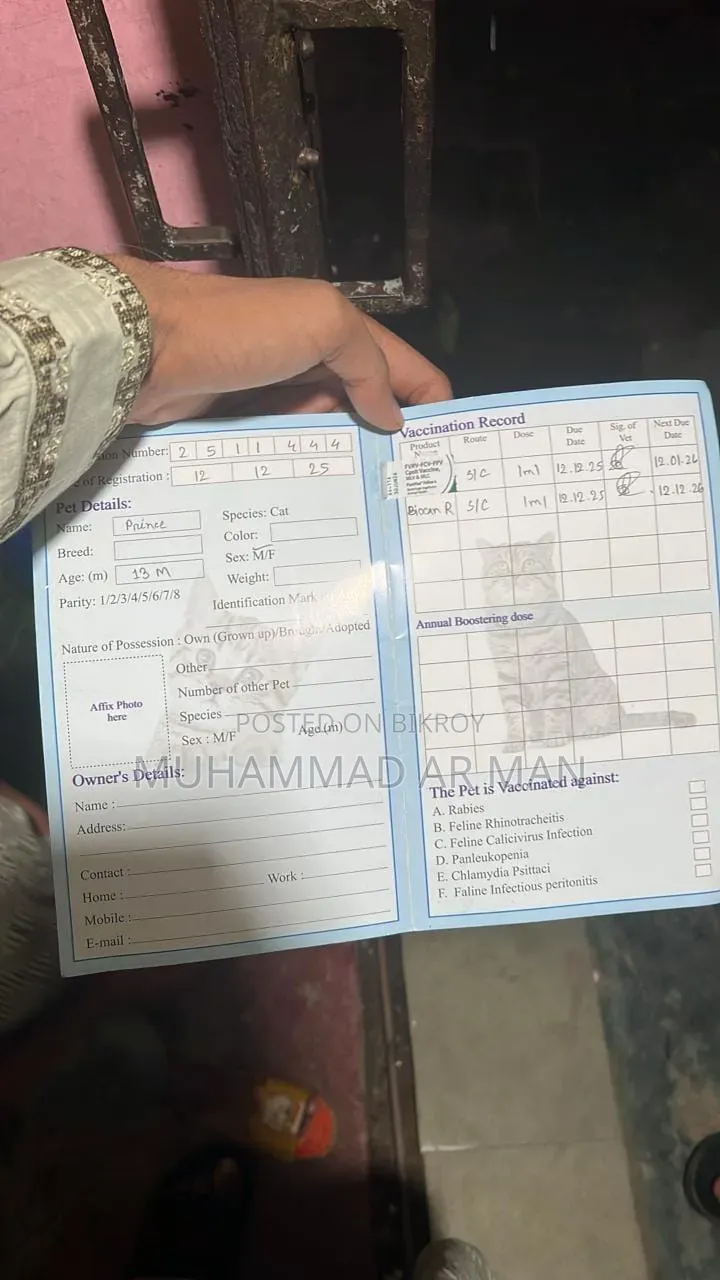 ion Number: 2 5 1 1 4 4 4
e of Registration : 12 12 25
Pet Details:
Name: Prince
Species: Cat
Breed:
Color:
Sex: M/F
Age: (m) 13 M
Weight:
Parity: 1/2/3/4/5/6/7/8
Identification Mark
Nature of Possession : Own (Grown up)/Brought/Adopted
Affix Photo
here
Other
Number of other Pet
Species
Sex : M/F
Age (m)
Owner's Details:
Name :
Address:
Contact :
Home :
Work :
Mobile :
E-mail :
Vaccination Record
Product
Route
Dose
Due
Date
Sig. of
Vet
Next Due
Date
FVRV-FCV-FPV
S/C 1ml 12.12.25 12.01.26
Biocan R S/C 1ml 12.12.25 12.12.26
Annual Boostering dose
The Pet is Vaccinated against:
A. Rabies
B. Feline Rhinotracheitis
C. Feline Calicivirus Infection
D. Panleukopenia
E. Chlamydia Psittaci
F. Faline Infectious peritonitis
POSTED ON BIKROY
MUHAMMAD AR MAN